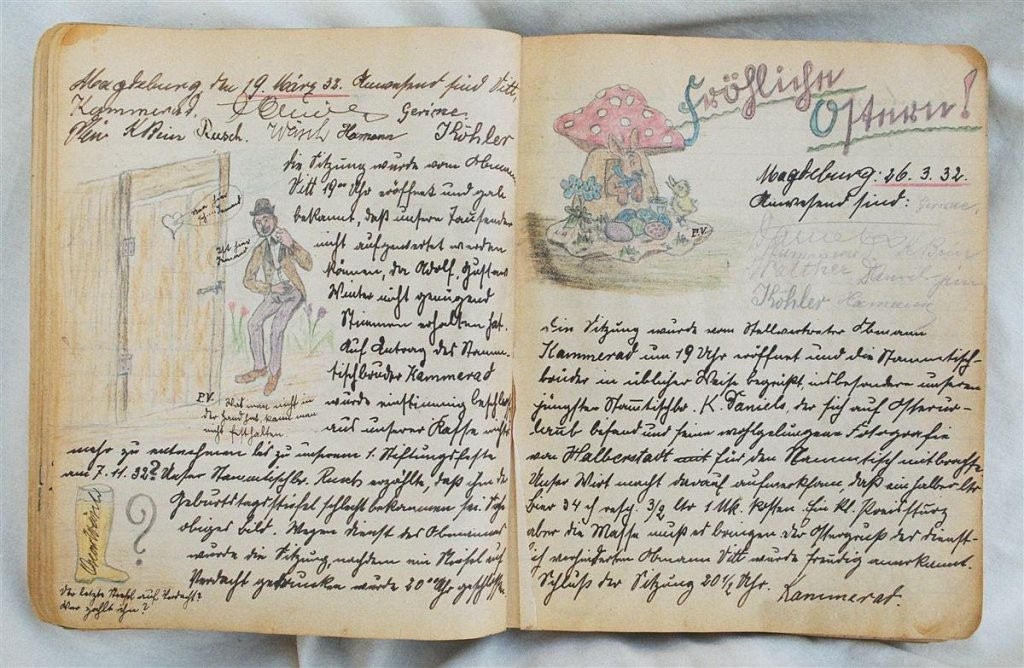 Magdeburg, den 19. März 32. Anwesend sind Vitt,
Kammerad. Gericke.
Klein Rusch. Hamann Köhler
die Sitzung wurde vom Obmann
Vitt 19⁰⁰ Uhr eröffnet und gab
bekannt, daß unsere Tausender
nicht aufgewertet werden
können, da Adolf, Gustav
Winter nicht genügend
Stimmen erhalten hat.
Auf Antrag des Stamm-
tischbruder Kammerad
wurde einstimmig beschloss
aus unserer Kasse nichts
mehr zu entnehmen bis zu unserem 1. Stiftungsfeste
am 7.11.32. Unser Stammtischbr. erzählte, daß ihm d
Geburtstagsstiefel schlecht bekommen sei. Siehe
obiges Bild. Wegen Dienst des Obmannes
wurde die Sitzung, nachdem ein Stiefel auf
Verdacht getrunken wurde 20⁰⁰ Uhr geschlossen.
P.V. Was man nicht in
der Hand hat kann man
nicht festhalten.
?
Der letzte Stiefel auf Verdacht?
Wer zahlt ihn?
Fröhliche
Ostern!
P.V.
Magdeburg: 26. 3. 32.
Anwesend sind: Gericke,
Klein
Walther Daniels
Köhler Hamann
Die Sitzung wurde vom Stellvertreter Obmann
Kammerad um 19 Uhr eröffnet und die Stammtisch-
brüder in üblicher Weise begrüßt, insbesondere unseren
jüngsten Stammtischbr. K. Daniels, der sich auf Osterur-
laub befand und seine wohlgelungene Fotografie
von Halberstadt für den Stammtisch mitbrachte.
Unser Wirt macht darauf aufmerksam, daß ein halber Ltr
Bier 34 ₰ resp. 3/2 Ltr 1 Mk. kosten. Ein kl. Preissturz
aber die Masse muß es bringen. Der Ostergruß des dienst-
lich verhinderten Obmann Vitt wurde freudig anerkannt.
Schluß der Sitzung 20½ Uhr. Kammerad.